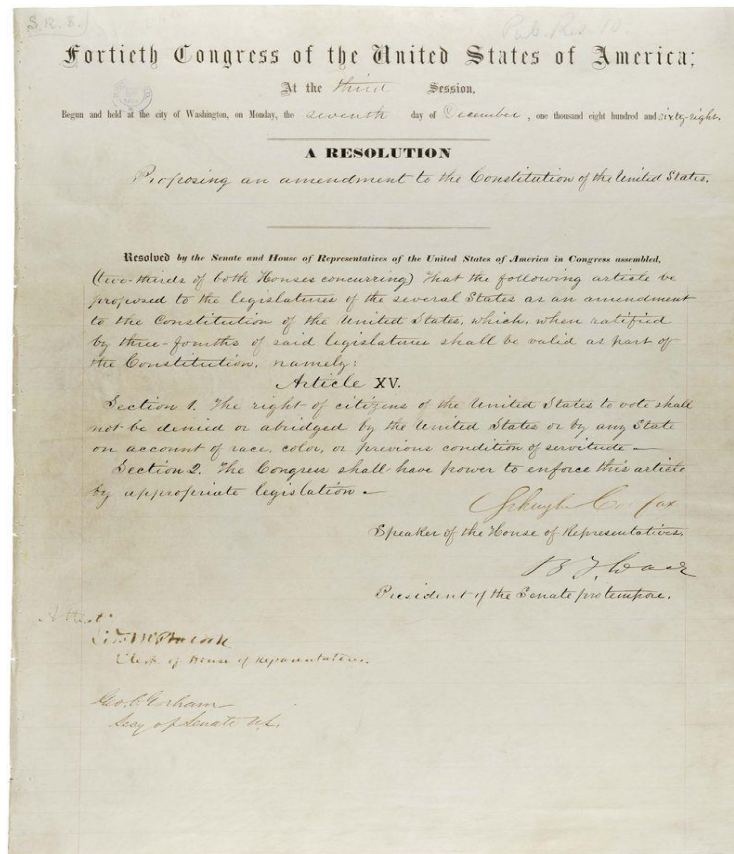 S.R. 8.
Pub. Res. 10.
Fortieth Congress of the United States of America;
At the third Session,
Begun and held at the city of Washington, on Monday, the seventh day of December, one thousand eight hundred and sixty-eight.
A RESOLUTION
Proposing an amendment to the Constitution of the United States.
Resolved by the Senate and House of Representatives of the United States of America in Congress assembled,
(two-thirds of both Houses concurring) That the following article be
proposed to the legislatures of the several States as an amendment
to the Constitution of the United States, which, when ratified
by three-fourths of said legislatures shall be valid as part of
the Constitution, namely:
Article XV.
Section 1. The right of citizens of the United States to vote shall
not be denied or abridged by the United States or by any State
on account of race, color, or previous condition of servitude—
Section 2. The Congress shall have power to enforce this article
by appropriate legislation—
Schuyler Colfax
Speaker of the House of Representatives.
B F Wade
President of the Senate pro tempore.
Attest:
Clerk of House of Representatives.
Geo. C. Gorham
Secy of Senate U.S.